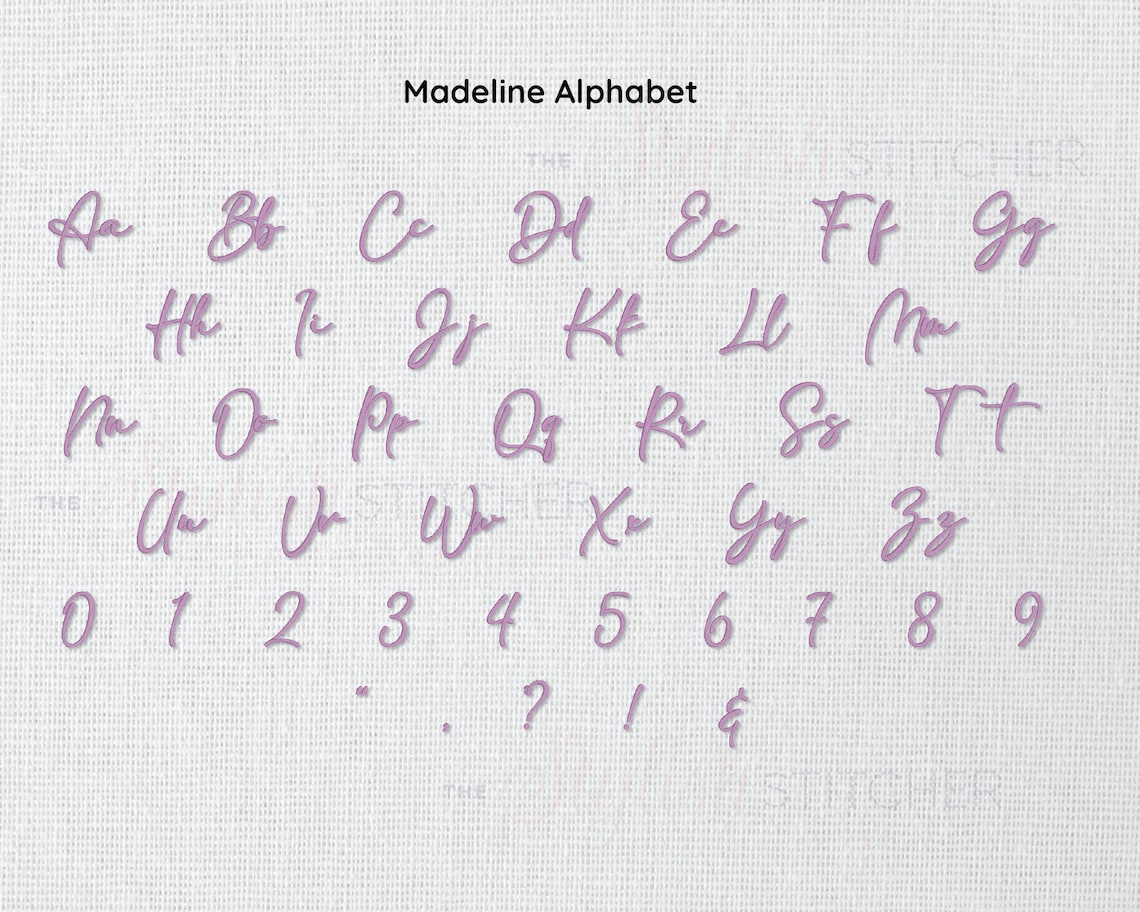 Madeline Alphabet
THE Stylish STITCHER
Aa Bb Cc Dd Ee Ff Gg
Hh Ii Jj Kk Ll Mm
Nn Oo Pp Qq Rr Ss Tt
THE Stylish STITCHER
Uu Vv Ww Xx Yy Zz
0 1 2 3 4 5 6 7 8 9
“ . ? ! &
THE Stylish STITCHER